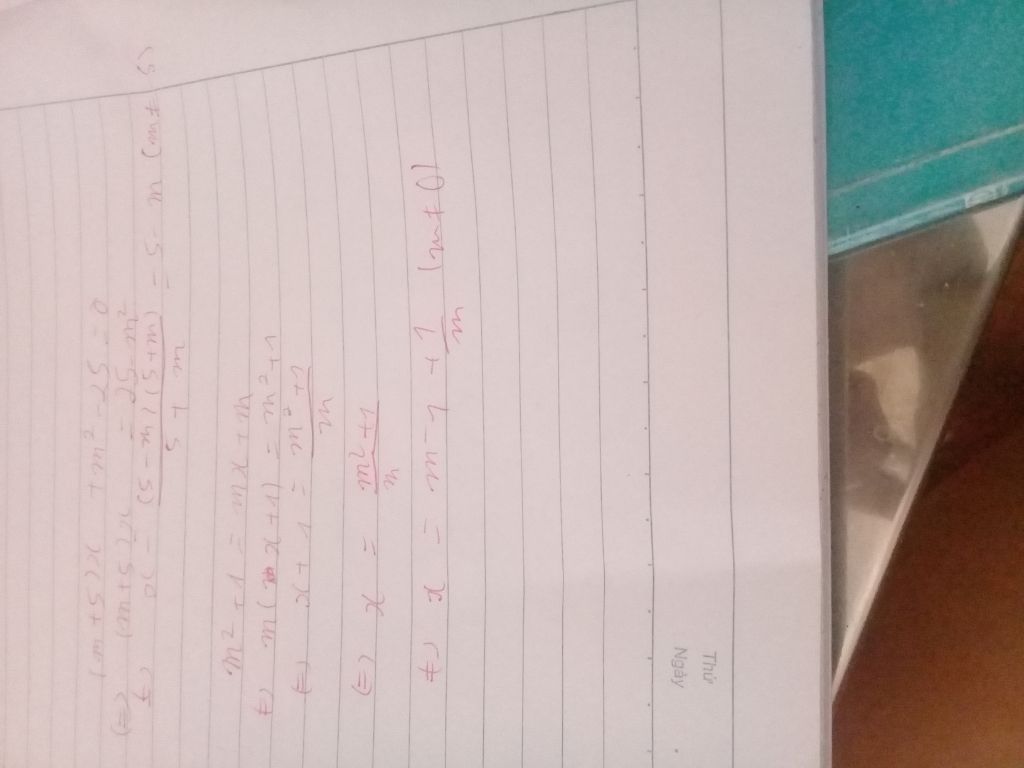 (m+5)x + m² - 25 = 0
(=) (m+5)x = 25 - m²
(=) x = (5-m)(5+m) / 5+m = 5 - m (m ≠ 5)
m² + 1 = mx + m
(=) m(x+1) = m² + 1
(=) x + 1 = m² + 1 / m
(=) x = m² + 1 / m
(=) x = m - 1 + 1 / m (m ≠ 0)
Thứ
Ngày